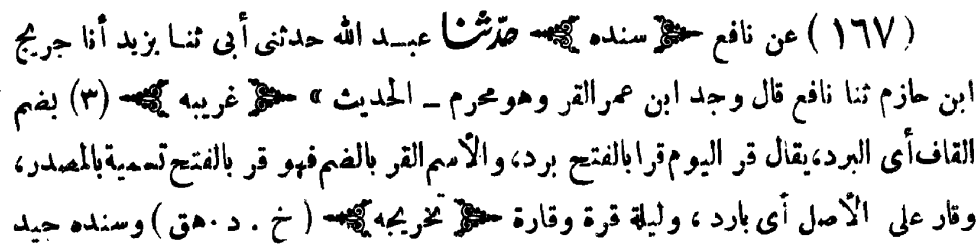 (١٦٧) عن نافع ﴿ سنده ﴾ حدثنا عبد الله حدثنى أبى ثنا يزيد أنا جريج
ابن حازم ثنا نافع قال وجد ابن عمر القر وهو محرم ــ الحديث » ﴿ غريبه ﴾ (٣) بضم
القاف أى البرد، يقال قر اليوم قرا بالفتح برد، والأسم القر بالضم فهو قر بالفتح تسمية بالمصدر،
وقار على الأصل أى بارد ، وليلة قرة وقارة ﴿ تخريجه ﴾ ( خ . د . هق ) وسنده جيد